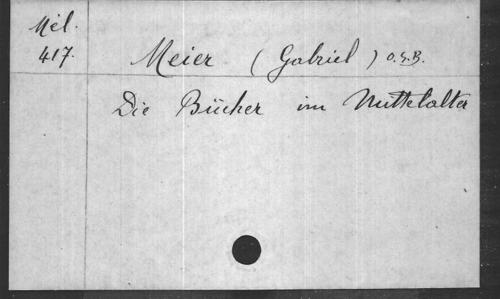 Mél.
417.
Meier (Gabriel) O.S.B.
Die Bücher im Mittelalter